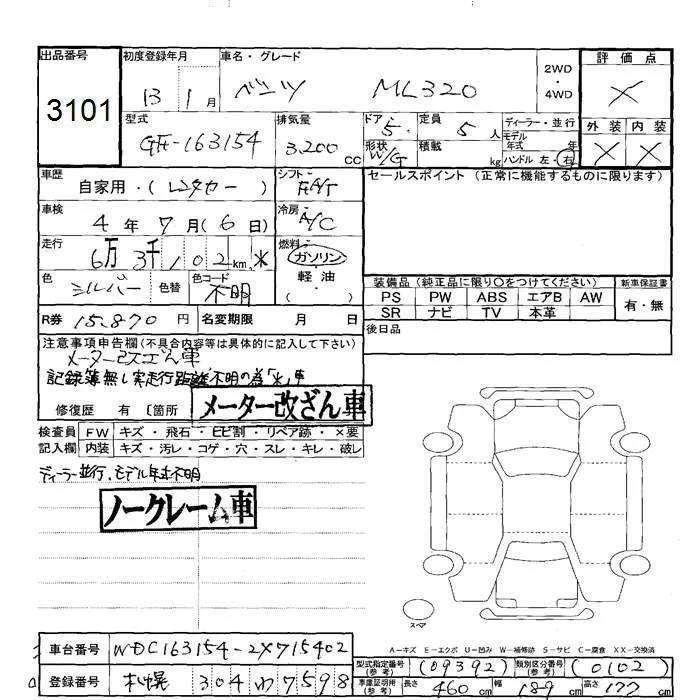 出品番号 3101
初度登録年月 13 1月
車名・グレード ベンツ ML320
2WD・4WD
評価点 X
外装 X 内装 X
型式 GF-163154
排気量 3,200cc
ドア 5 形状 W/G
定員 5人 積載 kg
ディーラー・並行
モデル年式 年
ハンドル 左・右
車歴 自家用・(レンタカー)
シフト FAT
車検 4年7月(6日)
冷房 A/C
走行 6万3千102km *
燃料 ガソリン・軽油・( )
色 シルバー 色替 色コード 不明
R券 15,870円 名変期限 月 日
セールスポイント(正常に機能するものに限ります)
装備品(純正品に限り○をつけてください) 新車保証書
PS PW ABS エアB AW 有・無
SR ナビ TV 本革
後日品
注意事項申告欄(不具合内容等は具体的に記入して下さい)
メーター改ざん車
記録簿無し実走行距離不明の為「*」車
修復歴 有 〔箇所
メーター改ざん車
検査員 FW キズ・飛石・ヒビ割・リペア跡・×要
記入欄 内装 キズ・汚レ・コゲ・穴・スレ・キレ・破レ
ディーラー並行、モデル年式不明
ノークレーム車
スペア
A－キズ E－エクボ U－凹み W－補修跡 S－サビ C－腐食 XX－交換済
車台番号 WDC163154-2X715402
登録番号 札幌 304 わ 7598
型式指定番号(参考) (09392) 類別区分番号(参考) (0102)
車庫証明用(参考) 長さ 460cm 幅 189cm 高さ 177cm